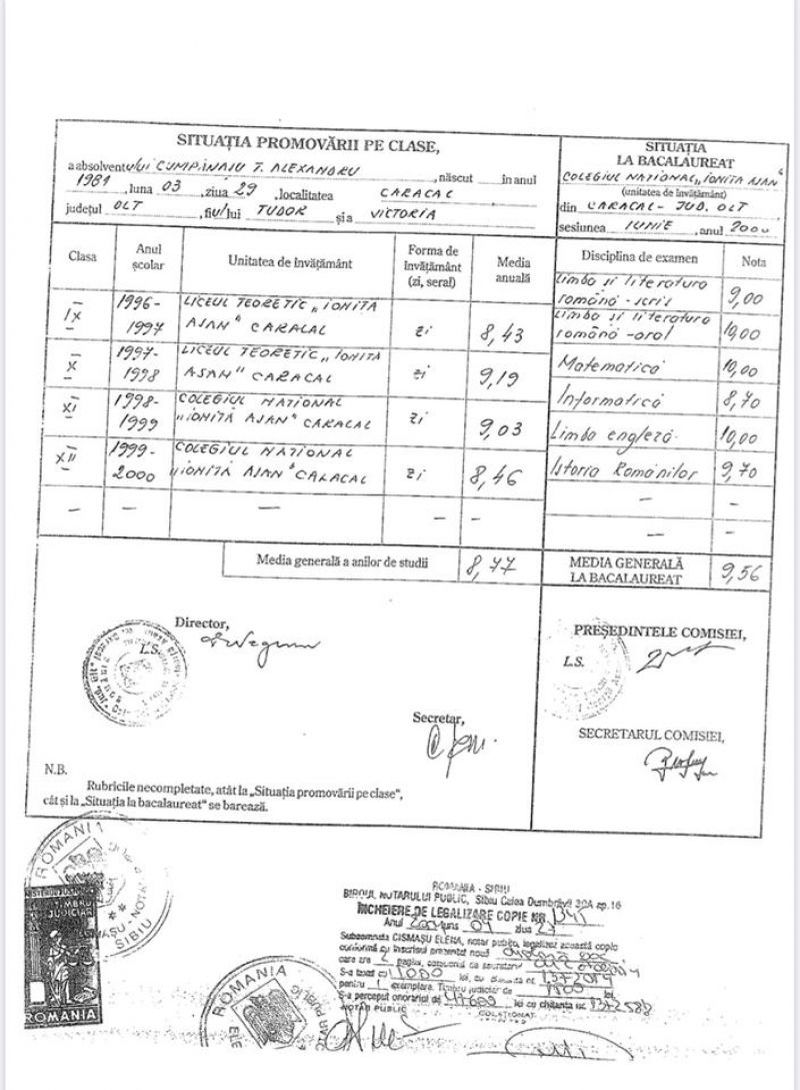 SITUAȚIA PROMOVĂRII PE CLASE,
a absolventului CUMPĂNAȘU T. ALEXANDRU, născut în anul
1981, luna 03, ziua 29, localitatea CARACAL
județul OLT, fiul/lui TUDOR și a VICTORIA
SITUAȚIA
LA BACALAUREAT
COLEGIUL NAȚIONAL „IONIȚĂ ASAN"
(unitatea de învățământ)
din CARACAL - JUD. OLT,
sesiunea IUNIE, anul 2000
Clasa
Anul școlar
Unitatea de învățământ
Forma de învățământ (zi, seral)
Media anuală
Disciplina de examen
Nota
IX 1996-1997 LICEUL TEORETIC „IONIȚĂ ASAN" CARACAL zi 8,43
X 1997-1998 LICEUL TEORETIC „IONIȚĂ ASAN" CARACAL zi 9,19
XI 1998-1999 COLEGIUL NAȚIONAL „IONIȚĂ ASAN" CARACAL zi 9,03
XII 1999-2000 COLEGIUL NAȚIONAL „IONIȚĂ ASAN" CARACAL zi 8,46
— — — — —
Limba și literatura română - scris 9,00
Limba și literatura română - oral 10,00
Matematică 10,00
Informatică 8,70
Limba engleză 10,00
Istoria Românilor 9,70
— —
— —
Media generală a anilor de studii 8,77
MEDIA GENERALĂ LA BACALAUREAT 9,56
Director,
L.S.
Secretar,
PREȘEDINTELE COMISIEI,
L.S.
SECRETARUL COMISIEI,
N.B.
Rubricile necompletate, atât la „Situația promovării pe clase",
cât și la „Situația la bacalaureat" se barează.
ROMANIA
SIBIU
TIMBRU
JUDICIAR
ROMANIA
ROMANIA
ROMANIA - SIBIU
BIROUL NOTARULUI PUBLIC, Sibiu Calea Dumbrăvii 30A ap.16
ÎNCHEIERE DE LEGALIZARE COPIE NR.
Anul luna ziua
Subsemnata CISMAȘU ELENA, notar public, legalizez această copie
conformă cu înscrisul prezentat nouă
care are 2 pagini,
S-a taxat cu 1000 lei, cu
pentru 1 exemplare. Timbru judiciar de
S-a perceput onorariul de lei cu chitanța nr.
NOTAR PUBLIC
COLAȚIONAT